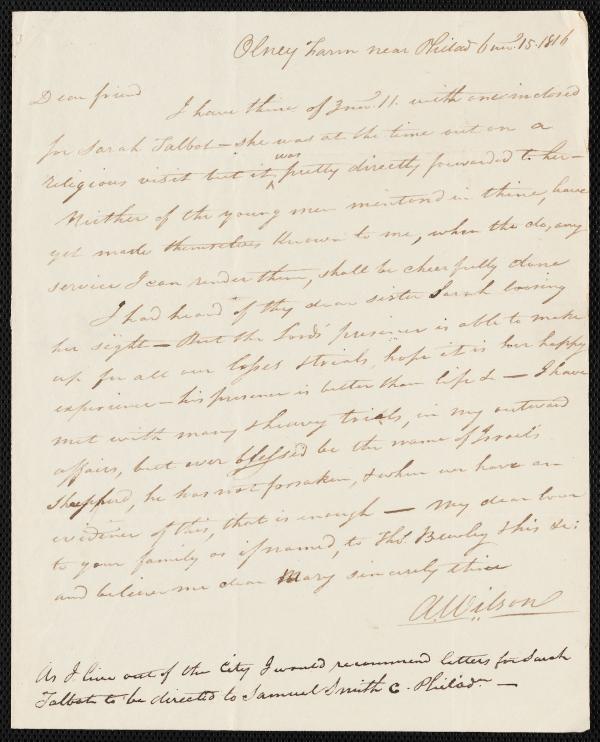 Olney Farm near Philad 6 mo. 15. 1816
Dear friend
I have thine of 3 mo. 11. with one inclosed
for Sarah Talbot – she was at the time out on a
religious visit but it was pretty directly forwarded to her –
Neither of the young men mentiond in thine, have
yet made themselves known to me, when the do, any
service I can render them, shall be cheerfully done
I had heard of thy dear sister Sarah loosing
her sight – But the Lord's presence is able to make
up for all our losses & trials, hope it is her happy
experience – his presence is better than life &c – I have
met with many & heavy trials, in my outward
affairs, but ever blessed be the name of Israel's
Shepperd, he has not forsaken, & when we have an
evidence of this, that is enough – My dear love
to your family as if named, to Thos. Bewley & his &c:
and believe me dear Mary sincerely thine
A. Wilson
As I live out of the City I would recommend letters for Sarah
Talbot to be directed to Samuel Smith Philada. –